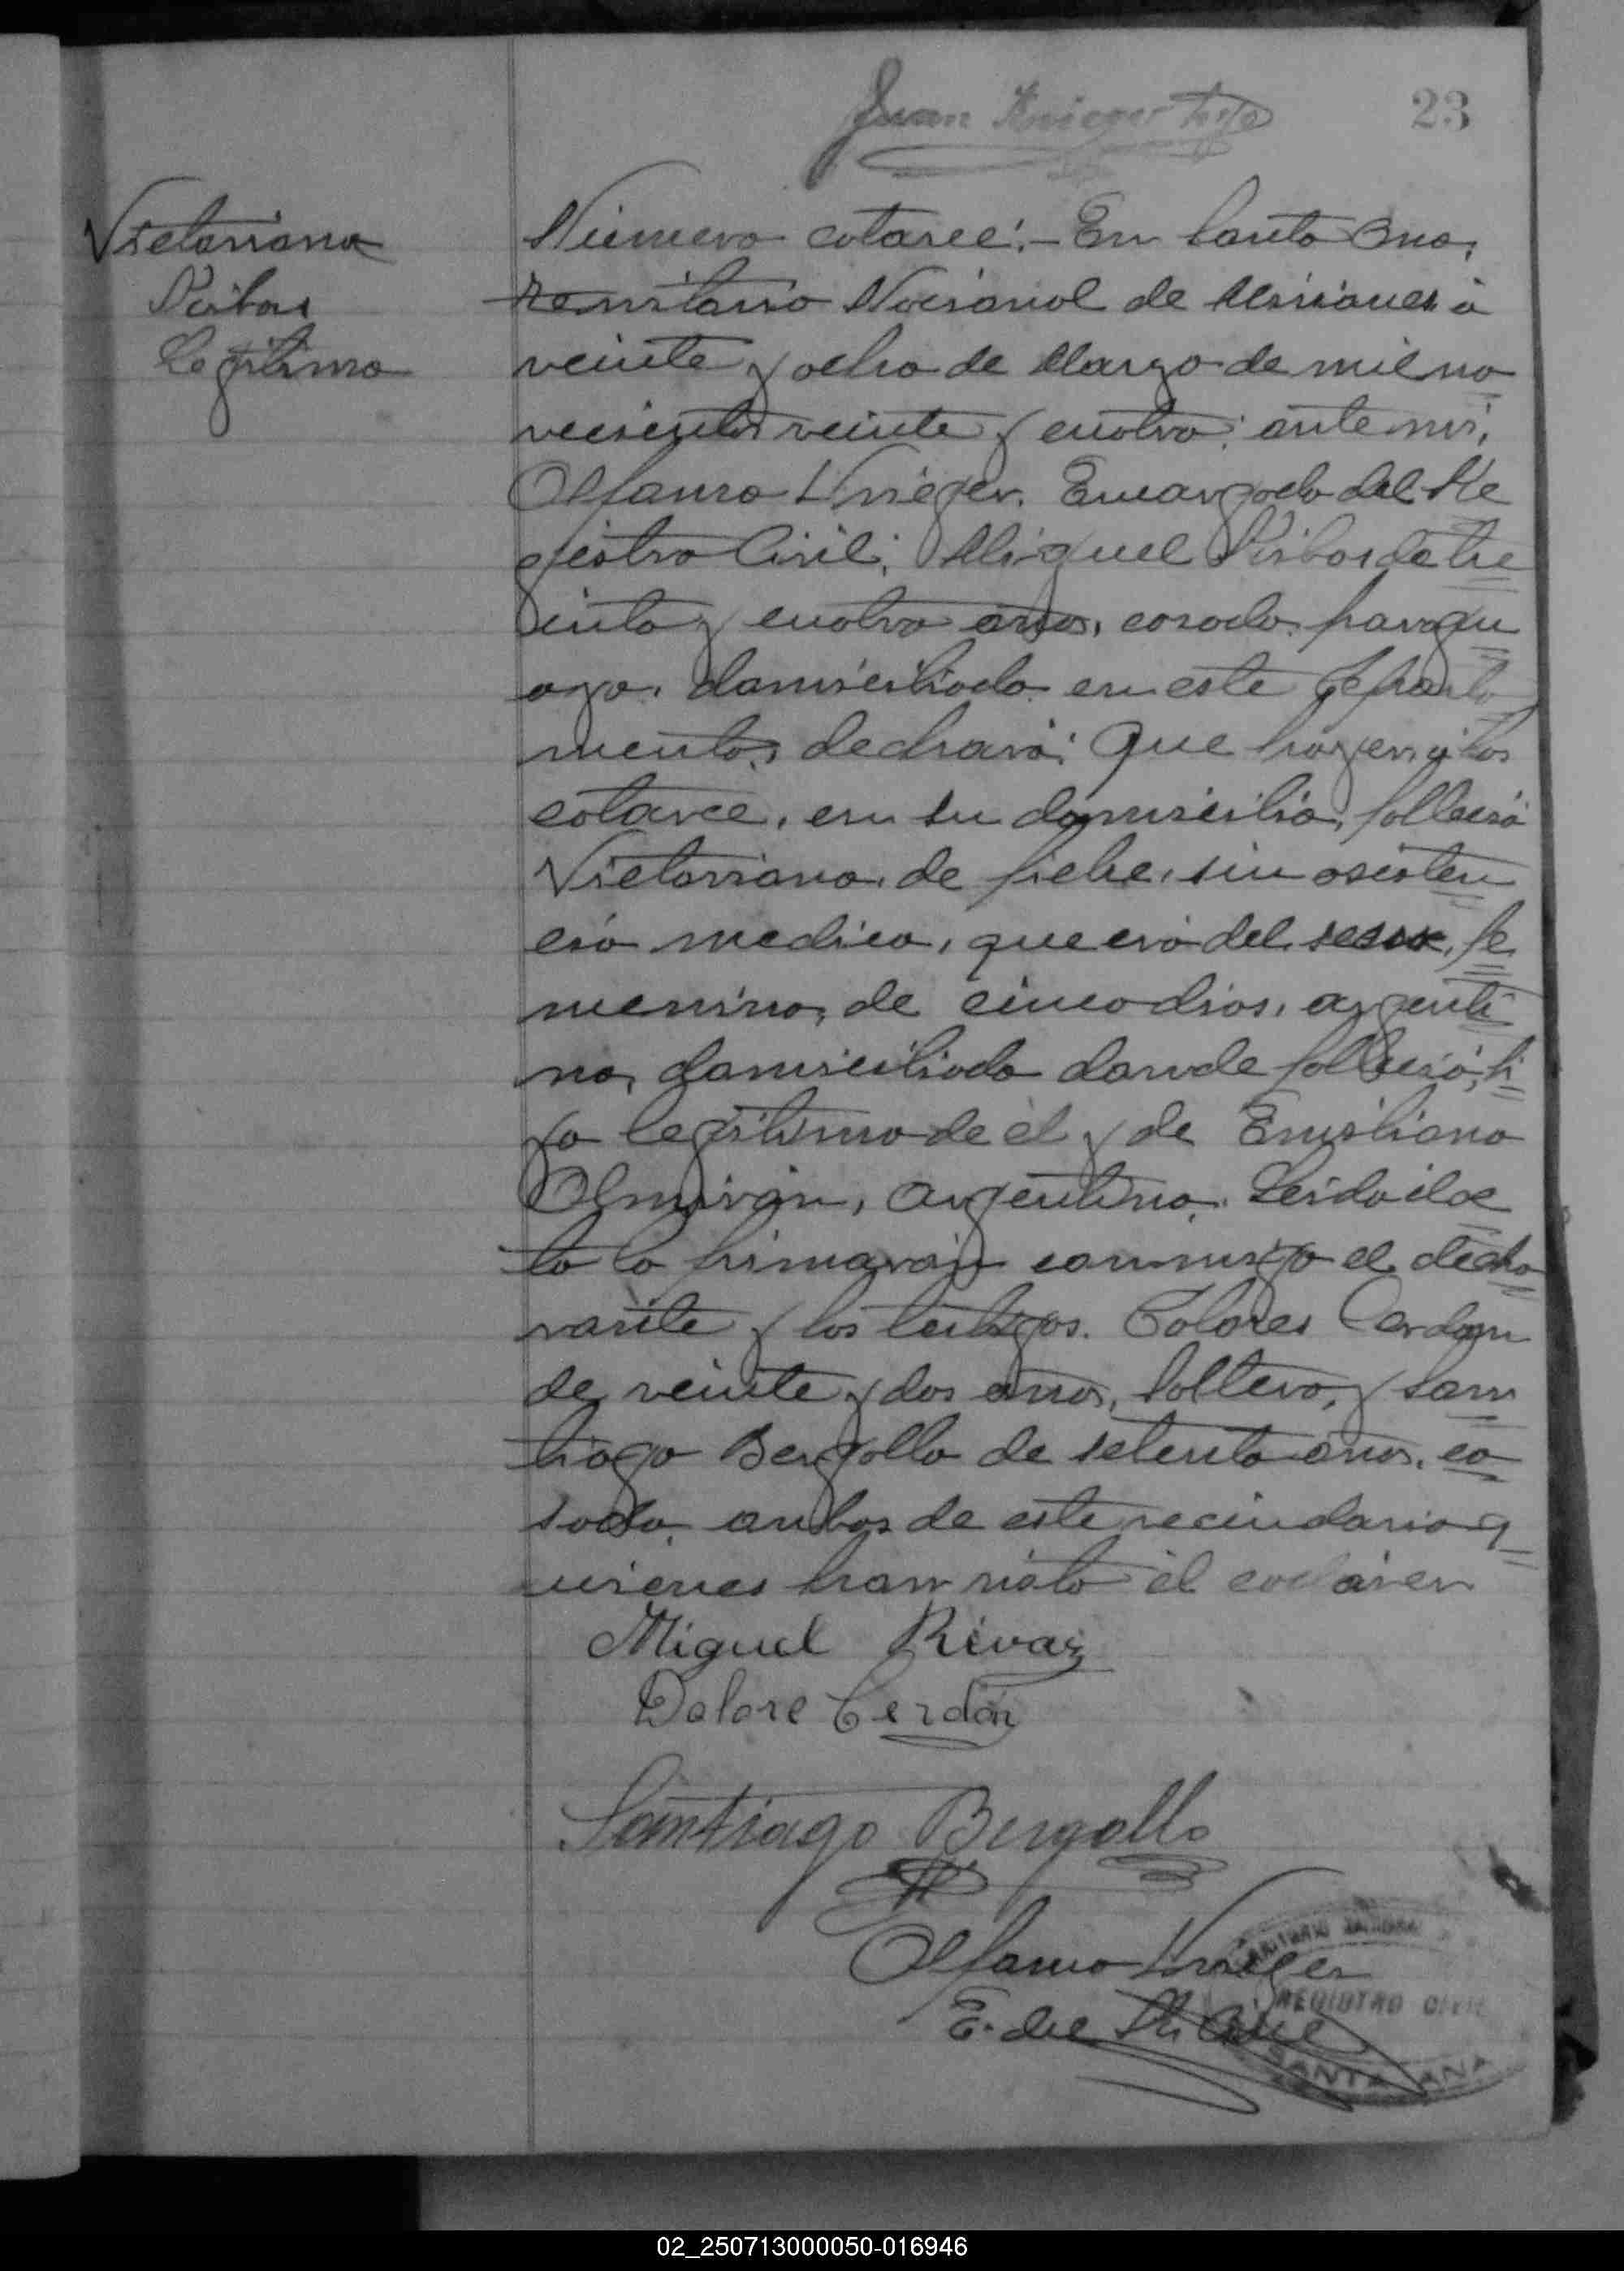 Juan Krieger hijo
23
Victoriana
Ribas
Legitima
Número catorce: - En Santa Ana,
Territorio Nacional de Misiones à
veinte y ocho de Marzo de mil no
vecientos veinte y cuatro: ante mi,
Alfonso Krieger. Encargado del Re
gistro Civil; Miguel Ribas de tre
inta y cuatro años, casado, paragu
ayo, domiciliado en este Departa
mento, declaró: Que hoy
catorce, en su domicilio, falleció
Victoriana, de fiebre, sin asisten
cia medica, que era del sexo, fe
menino, de cinco dias, argenti
na, domiciliada donde falleció, hi
ja legitima de él y de Emiliana
Almirón, argentina. Leida el ac
ta la firmarán conmigo el decla
rante y los testigos. Dolores Cerdan
de veinte y dos años, soltero, y San
tiago Bergallo de setenta años, ca
sado, ambos de este vecindario q
uienes han visto el cadáver
Miguel Rivas
Dolore Cerdán
Santiago Bergallo
Alfonso Krieger
E. del R. Civil
REGISTRO CIVIL
SANTA ANA
02_250713000050-016946